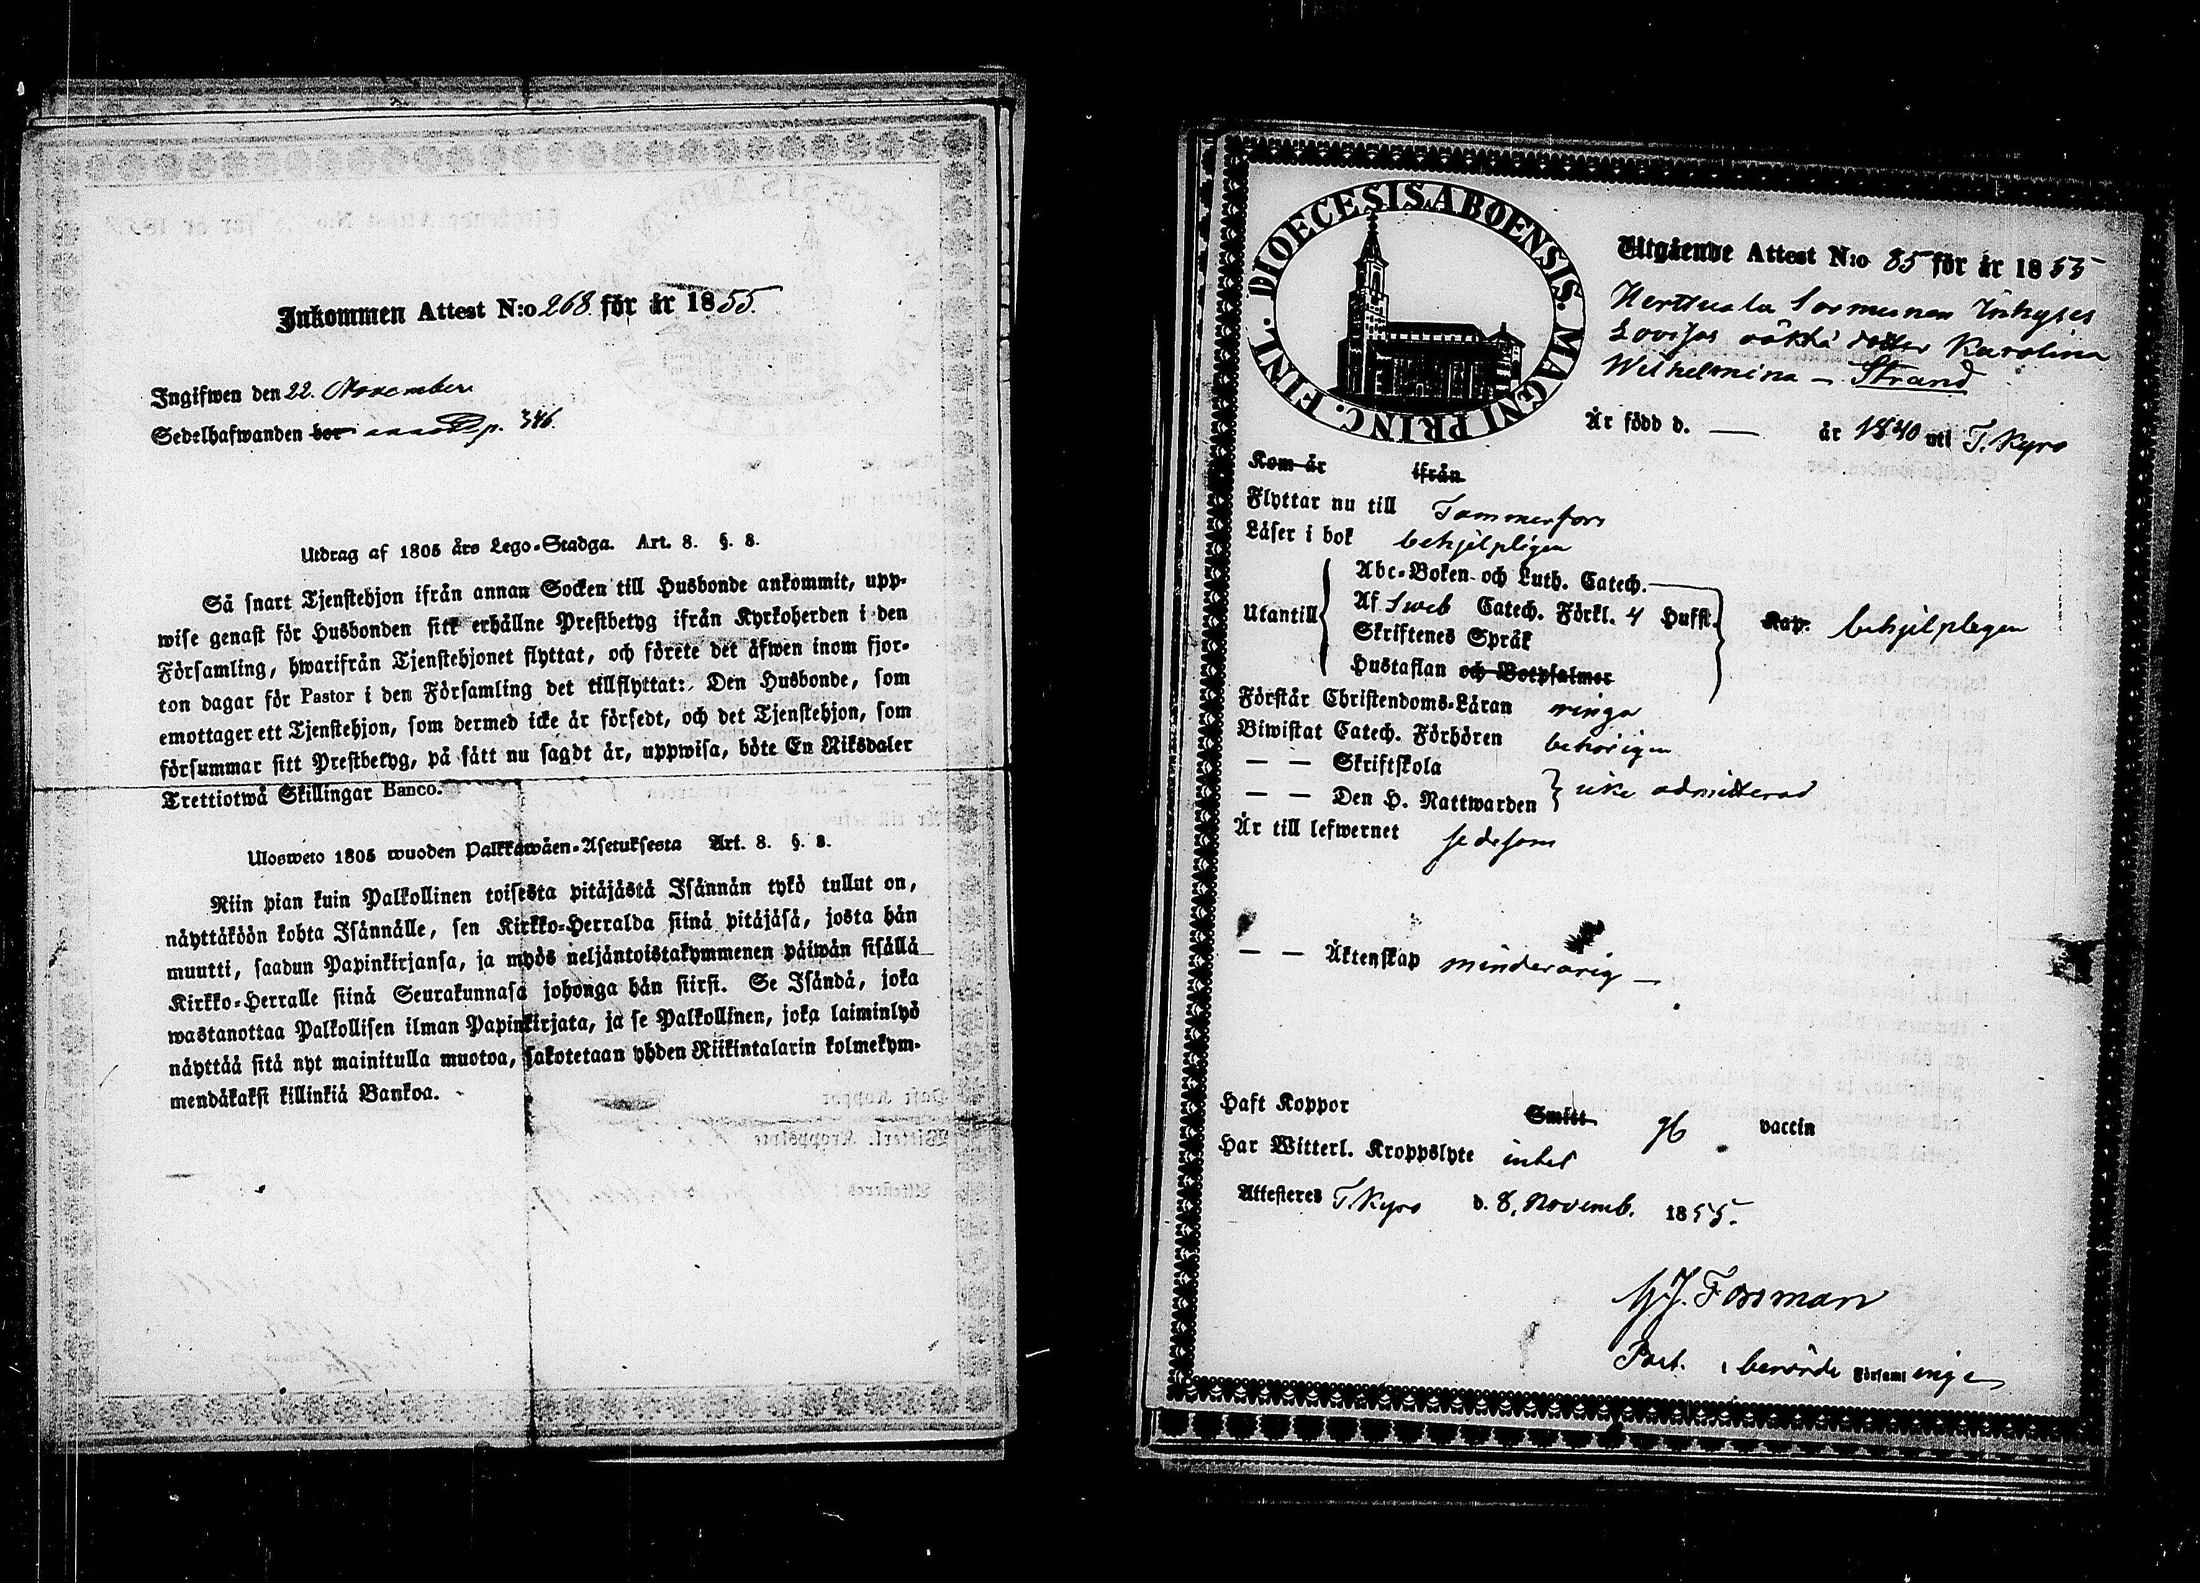 Inkommen Attest N:o 268. för år 1855.
Ingifwen den 22. November
Sedelhafwanden bor annot p. 346.
Utdrag af 1805 års Lego-Stadga. Art. 8. §. 8.
Så snart Tjenstehjon ifrån annan Socken till Husbonde ankommit, upp-
wise genast för Husbonden sitt erhållne Prestbetyg ifrån Kyrkoherden i den
Församling, hwarifrån Tjenstehjonet flyttat, och förete det äfwen inom fjor-
ton dagar för Pastor i den Församling det tillflyttat: Den Husbonde, som
emottager ett Tjenstehjon, som dermed icke är försedt, och det Tjenstehjon, som
försummar sitt Prestbetyg, på sätt nu sagdt är, uppwisa, böte En Riksdaler
Trettiotwå Skillingar Banco.
Ulosweto 1805 wuoden Palkkawäen-Asetuksesta Art. 8. §. 8.
Niin pian kuin Palkollinen toisesta pitäjästä Isännän tykö tullut on,
näyttäköön kohta Isännälle, sen Kirkko-Herralda siinä pitäjäsä, josta hän
muutti, saadun Papinkirjansa, ja myös neljäntoistakymmenen päiwän sisällä
Kirkko-Herralle siinä Seurakunnasa johonga hän siirsi. Se Isändä, joka
wastanottaa Palkollisen ilman Papinkirjata, ja se Palkollinen, joka laiminlyö
näyttää sitä nyt mainitulla muotoa, sakotetaan yhden Riikintalarin kolmekym-
mendäkaksi killinkiä Bankoa.
DIOECESIS ABOENSIS. MAGNI PRINC. FINL.
Utgående Attest N:o 85 för år 1855
Herttuala Sormunen Inhyses
Lovisas oäkta dotter Karolina
Wilhelmina – Strand
Är född d. — år 1840 uti T. Kyro
Kom år ifrån
Flyttar nu till Tammerfors
Läser i bok behjelpligen
Utantill
Abc-Boken och Luth. Catech.
Af Sweb Catech. Förkl. 4 Hufst.
Skriftenes Språk
Hustaflan och Botpsalmer
Kap. behjelpligen
Förstår Christendoms-Läran ringa
Biwistat Catech. Förhören behörigen
— — Skriftskola
— — Den H. Nattwarden } icke admitterad
Är till lefwernet sedesam
— — Äktenskap minderårig —
Haft Koppor Smitt vaccin
Har Witterl. Kroppslyte intet
Attesteres T. Kyro d. 8. Novemb. 1855.
Forsman
Past. i berörde Församl inge